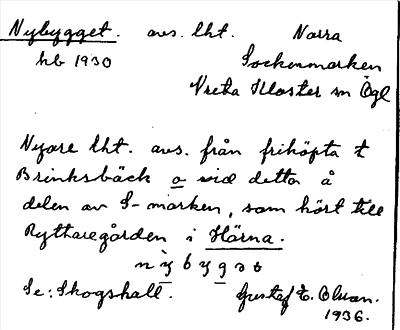 Nybygget. avs. lht. Norra
hb 1930 Sockenmarken
Vreta Kloster sn Ögl
Nyare lht. avs. från friköpta t
Brinksbäck o vid detta å
delen av S-marken, som hört till
Ryttaregården i Härna.
Se: Skogshall. Gustaf E. Olsson.
1936.